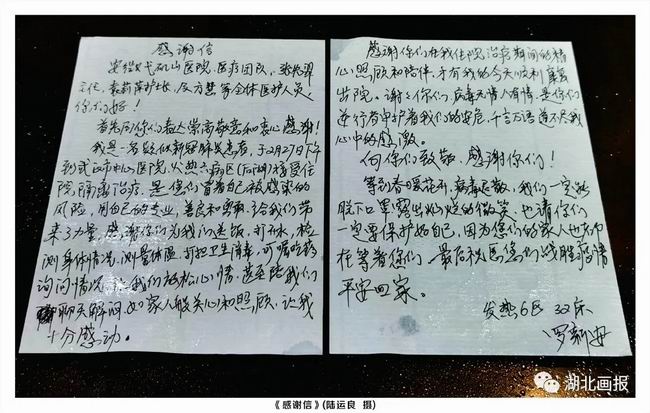 感谢信
安徽弋矶山医院,医疗团队,张
主任,袁莉萍护士长,及方慧等全体医护人员!
你们好!
首先向你们表达崇高敬意和衷心感谢!
我是一名疑似新冠肺炎患者,于2月27日下午
到武汉市中心医院,发热六病区(后湖)接受住
院,隔离治疗,是你们冒着自己被感染的
风险,用自己的专业,善良和勇敢给我们带
来了力量,感谢你们为我们送饭,打开水,检
测身体情况,测量体温,打扫卫生消毒,叮嘱吃药
询问情况,让我们放松心情,甚至陪我们
聊天解闷,如家人般关心和照顾,让我
十分感动。
感谢你们在我住院治疗期间的精
心照顾和陪伴,才有我的今天顺利康复
出院。谢谢你们,病毒无情人有情,是你们
逆行者守护着我们的安危,千言万语道不尽我
心中的感激。
向你们致敬,感谢你们!
等到春暖花开,病毒退散,我们一定能
脱下口罩露出灿烂的微笑,也请你们
一定要保护好自己,因为您们的家人也在
在等着你们,最后祝愿您们战胜疫情
平安回家。
发热6区 32床
罗新安
湖北画报
《感谢信》(陆运良 摄)